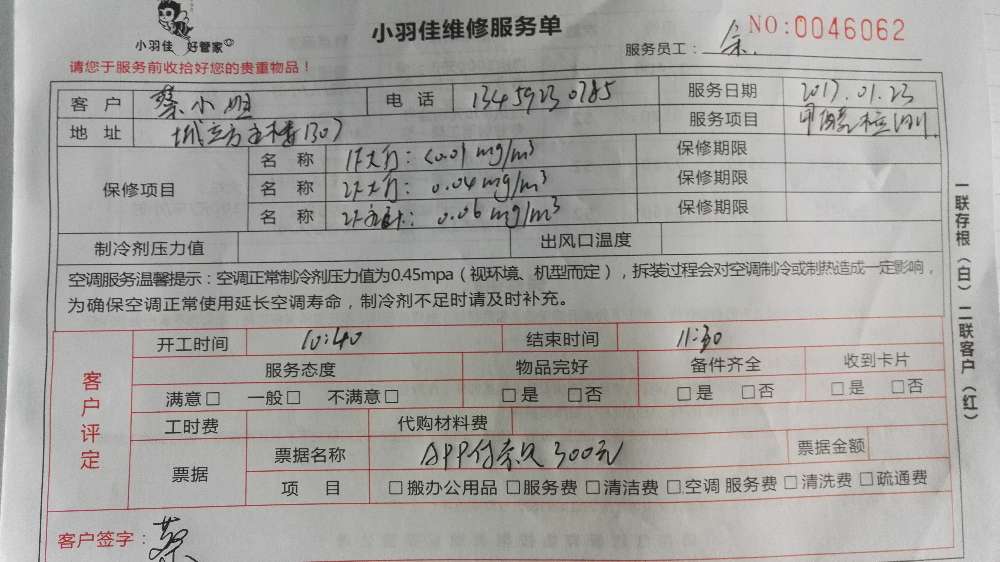 小羽佳 好管家
小羽佳维修服务单
服务员工：余
NO:0046062
请您于服务前收拾好您的贵重物品！
客户 蔡小姐 电话 13459230785 服务日期 2017.01.23
地址 城立方主楼1307 服务项目 甲醛检测
保修项目
名称 1F大厅：<0.01 mg/m³ 保修期限
名称 2F大厅：0.04 mg/m³ 保修期限
名称 2F 0.06 mg/m³ 保修期限
制冷剂压力值 出风口温度
空调服务温馨提示：空调正常制冷剂压力值为0.45mpa（视环境、机型而定），拆装过程会对空调制冷或制热造成一定影响，
为确保空调正常使用延长空调寿命，制冷剂不足时请及时补充。
客户评定
开工时间 10:40 结束时间 11:30
服务态度 物品完好 备件齐全 收到卡片
满意□ 一般□ 不满意□ □是 □否 □是 □否 □是 □否
工时费 代购材料费
票据
票据名称 APP付款 300元 票据金额
项目 □搬办公用品 □服务费 □清洁费 □空调 服务费 □清洗费 □疏通费
客户签字：蔡
一联存根（白）二联客户（红）